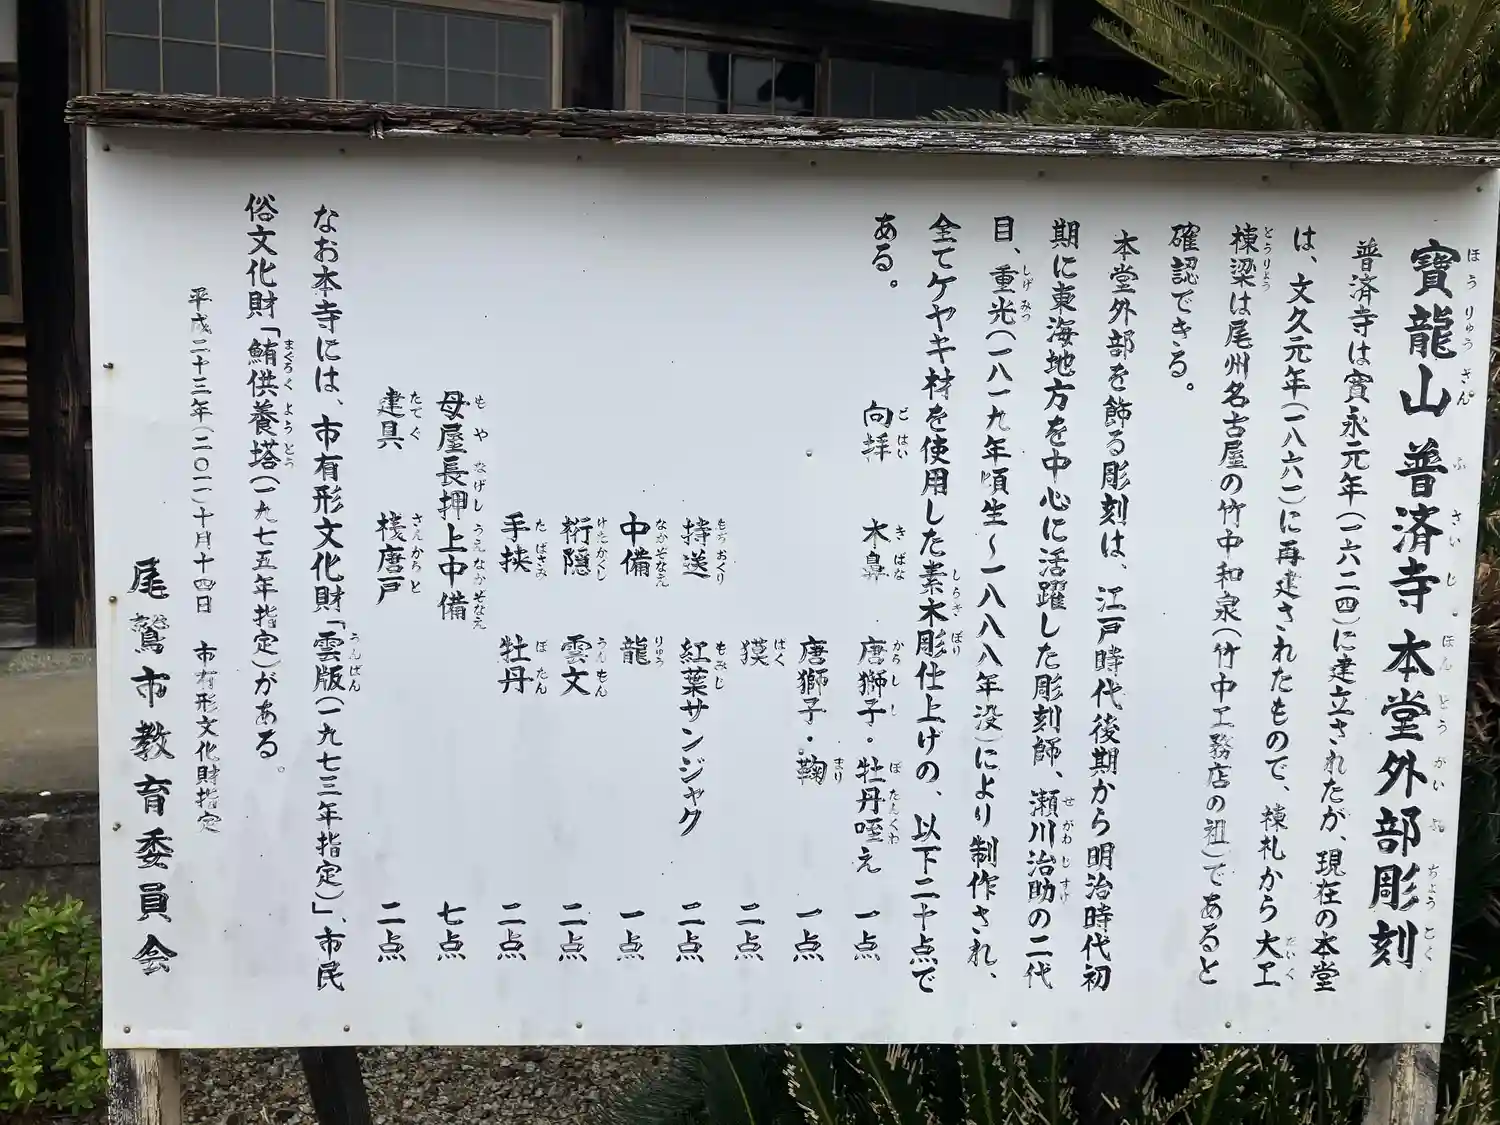 寶龍山 普済寺 本堂外部彫刻
普済寺は寛永元年(一六二四)に建立されたが、現在の本堂
は、文久元年(一八六一)に再建されたもので、棟札から大工
棟梁は尾州名古屋の竹中和泉(竹中工務店の祖)であると
確認できる。
本堂外部を飾る彫刻は、江戸時代後期から明治時代初
期に東海地方を中心に活躍した彫刻師、瀬川治助の二代
目、重光(一八一九年頃生～一八八八年没)により制作され、
全てケヤキ材を使用した素木彫仕上げの、以下二十点で
ある。
向拝 木鼻 唐獅子・牡丹咥え 一点
唐獅子・鞠 一点
獏 二点
持送 紅葉サンジャク 二点
中備 龍 一点
桁隠 雲文 二点
手挟 牡丹 二点
母屋長押上中備 七点
建具 桟唐戸 二点
なお本寺には、市有形文化財「雲版(一九七三年指定)」、市民
俗文化財「鮪供養塔(一九七五年指定)がある。
平成二十三年(二〇一一)十月十四日 市有形文化財指定
尾鷲市教育委員会